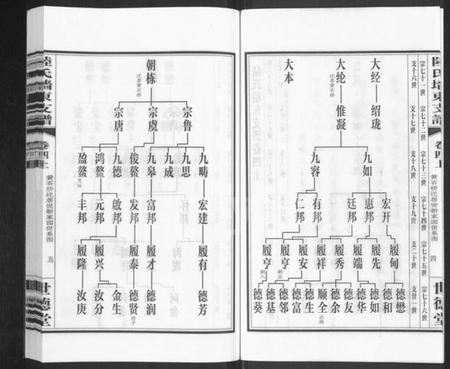 陆氏墙東支譜
宗七十一世 宗七十二世 宗七十三世 宗七十四世 宗七十五世 宗七十六世
支十六世 支十七世 支十八世 支十九世 支二十世 支廿一世
四
世德堂
大经 绍珑
大纶 惟凝
大本
九如
九容
宏开
惠邦
廷邦
有邦
仁邦
履甸
履先
履端
履秀
履祥
履安
履亨
履亨
德懋
德和
德如
德华
德友
德余
顺全
德生
德富
德邻
德基
德葵
朝栋
宗鲁
宗虞
宗唐
九畴 宏建 履有 德芳
九思
九成
九皋 富邦 履才 德润
俊鳌 发邦 履泰 德贤
九德 啟邦 金生
鸿鳌 元邦 履兴 汝分
盈鳌 丰邦 履隆 汝庚
陆氏墙東支譜
卷四上
黄石桥迁居世新家园世系图
五
世德堂